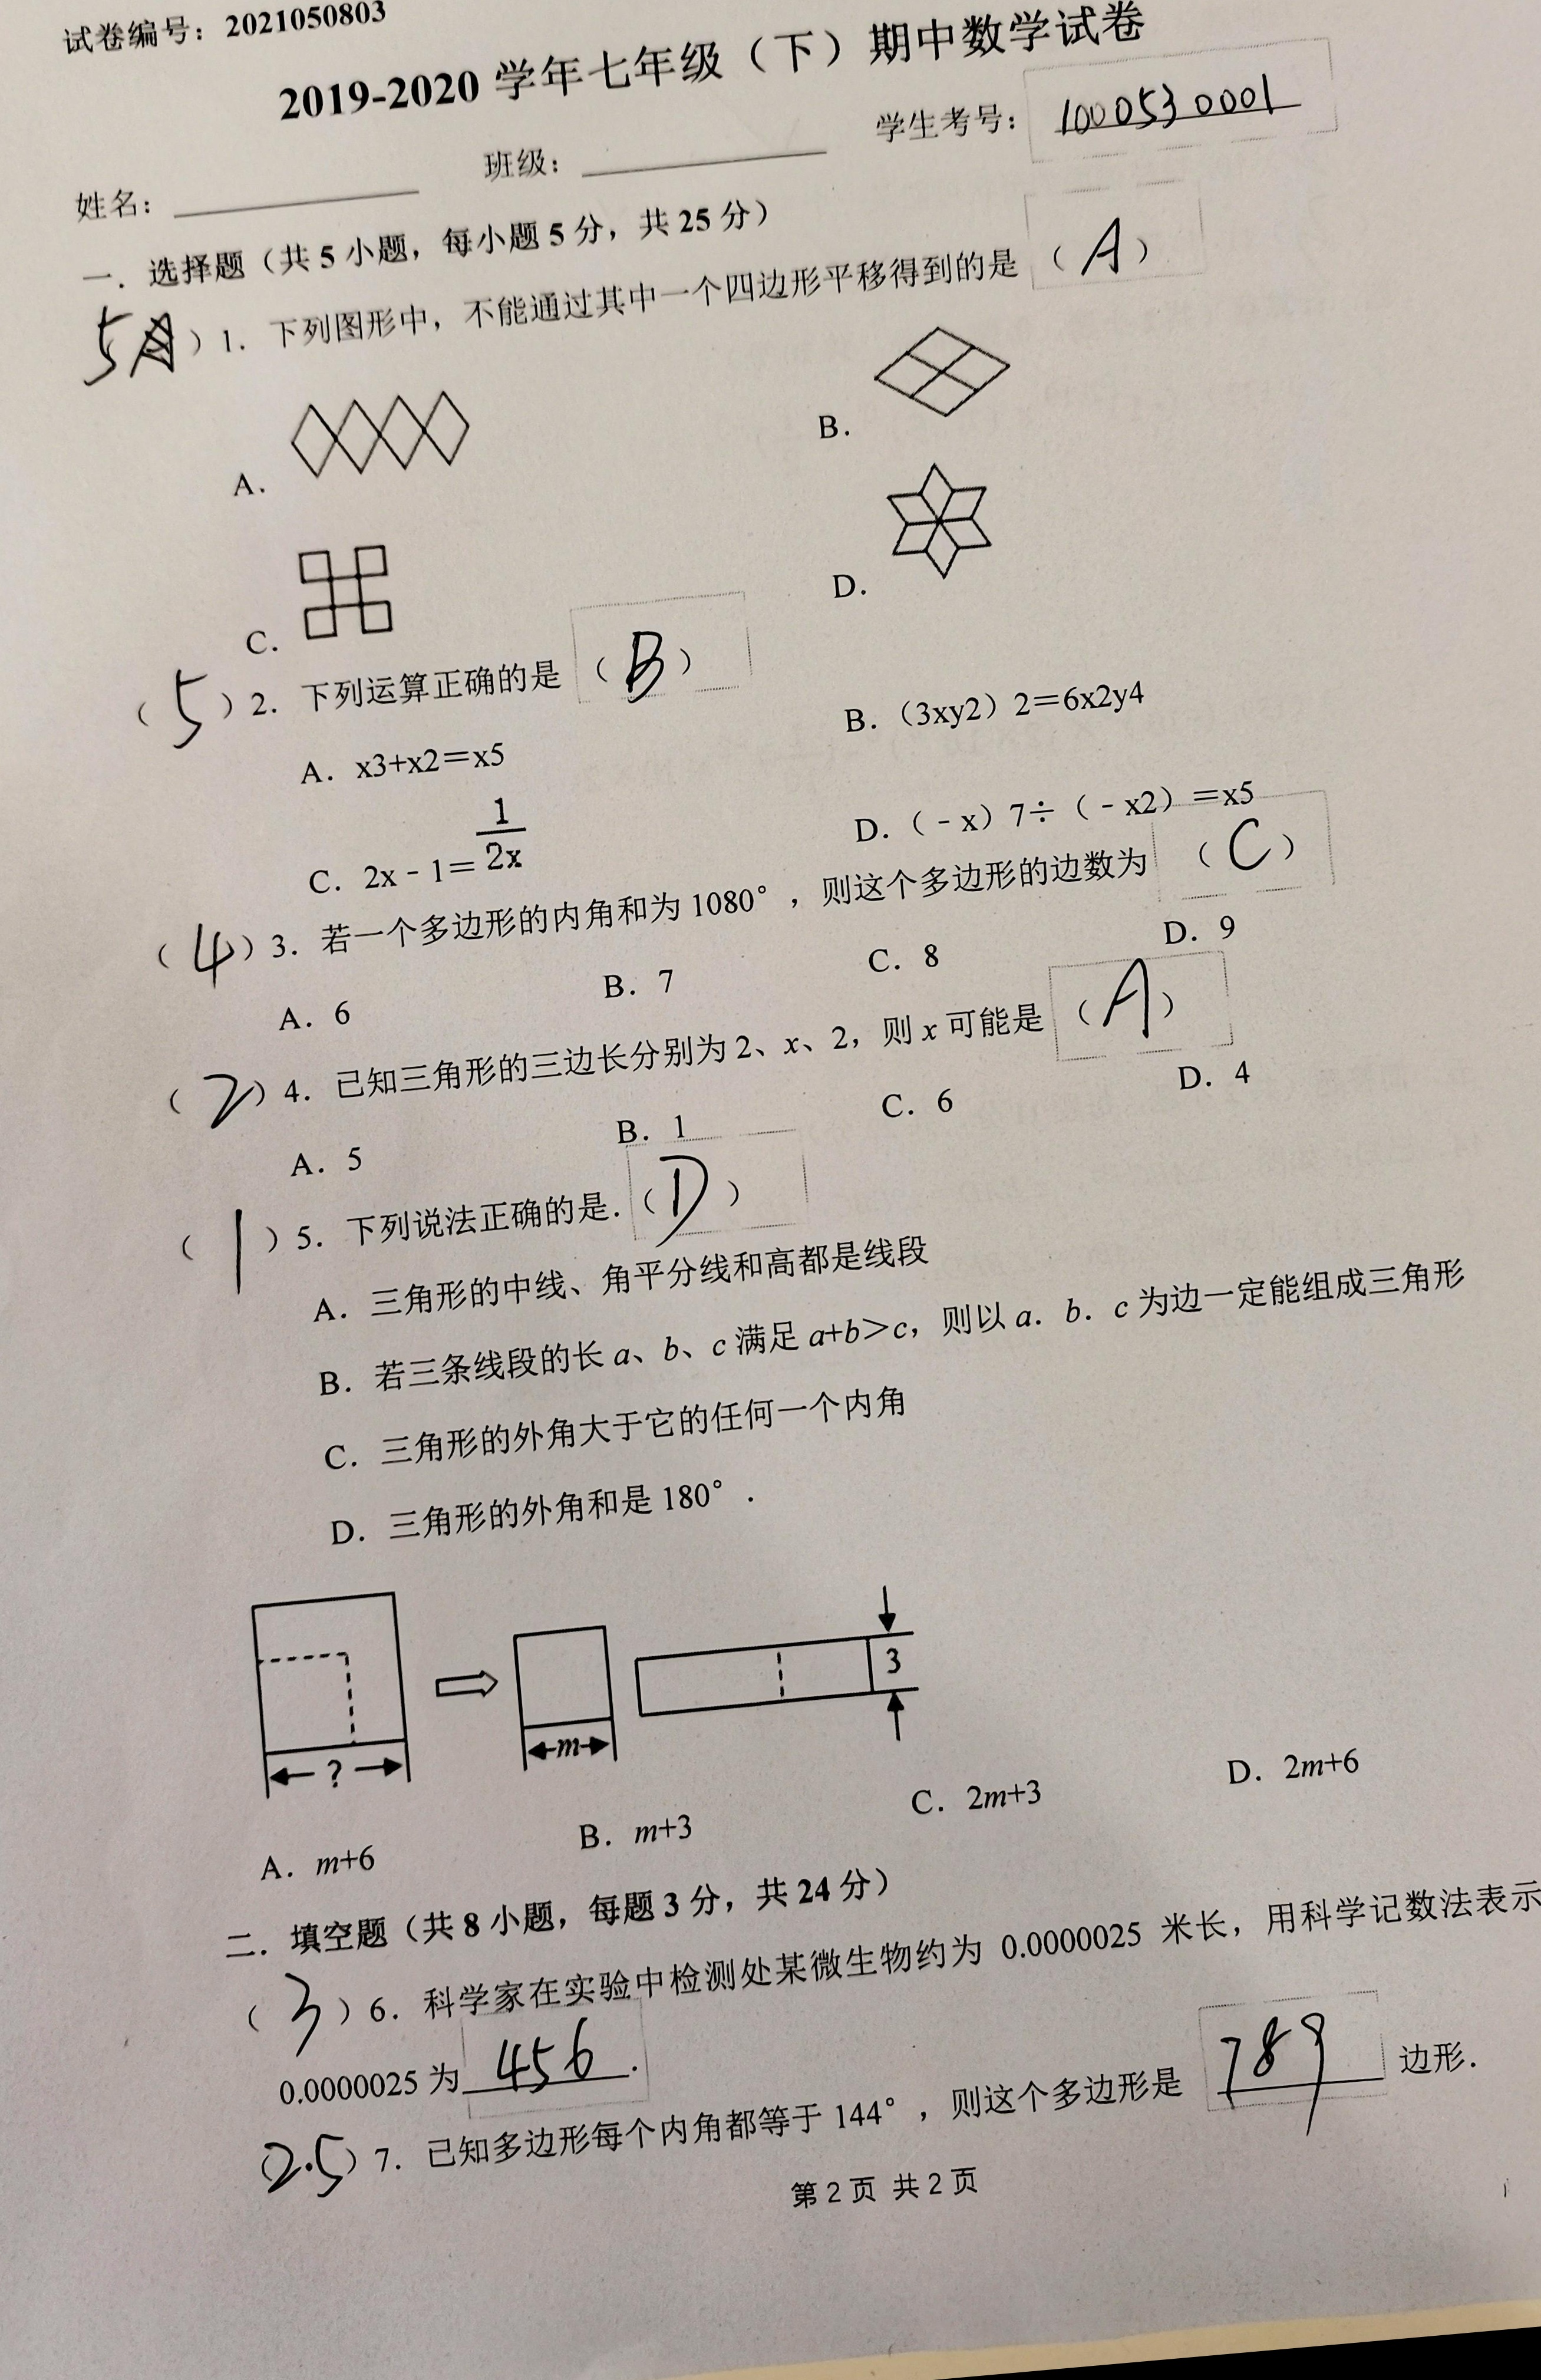 试卷编号：2021050803
2019-2020 学年七年级（下）期中数学试卷
姓名： 班级： 学生考号：1000530001
一．选择题（共 5 小题，每小题 5 分，共 25 分）
5 ）1．下列图形中，不能通过其中一个四边形平移得到的是（ A ）
A．
B．
C．
D．
（ 5 ）2．下列运算正确的是（ B ）
A．x3+x2＝x5
B．（3xy2）2＝6x2y4
C．2x﹣1＝1/2x
D．（﹣x）7÷（﹣x2）＝x5
（ 4 ）3．若一个多边形的内角和为 1080°，则这个多边形的边数为（ C ）
A．6 B．7 C．8 D．9
（ 2 ）4．已知三角形的三边长分别为 2、x、2，则 x 可能是（ A ）
A．5 B．1 C．6 D．4
（ 1 ）5．下列说法正确的是．（ D ）
A．三角形的中线、角平分线和高都是线段
B．若三条线段的长 a、b、c 满足 a+b＞c，则以 a．b．c 为边一定能组成三角形
C．三角形的外角大于它的任何一个内角
D．三角形的外角和是 180°．
? m 3
A．m+6 B．m+3 C．2m+3 D．2m+6
二．填空题（共 8 小题，每题 3 分，共 24 分）
（ 3 ）6．科学家在实验中检测处某微生物约为 0.0000025 米长，用科学记数法表示
0.0000025 为 456 ．
（2.5）7．已知多边形每个内角都等于 144°，则这个多边形是 789 边形．
第 2 页 共 2 页